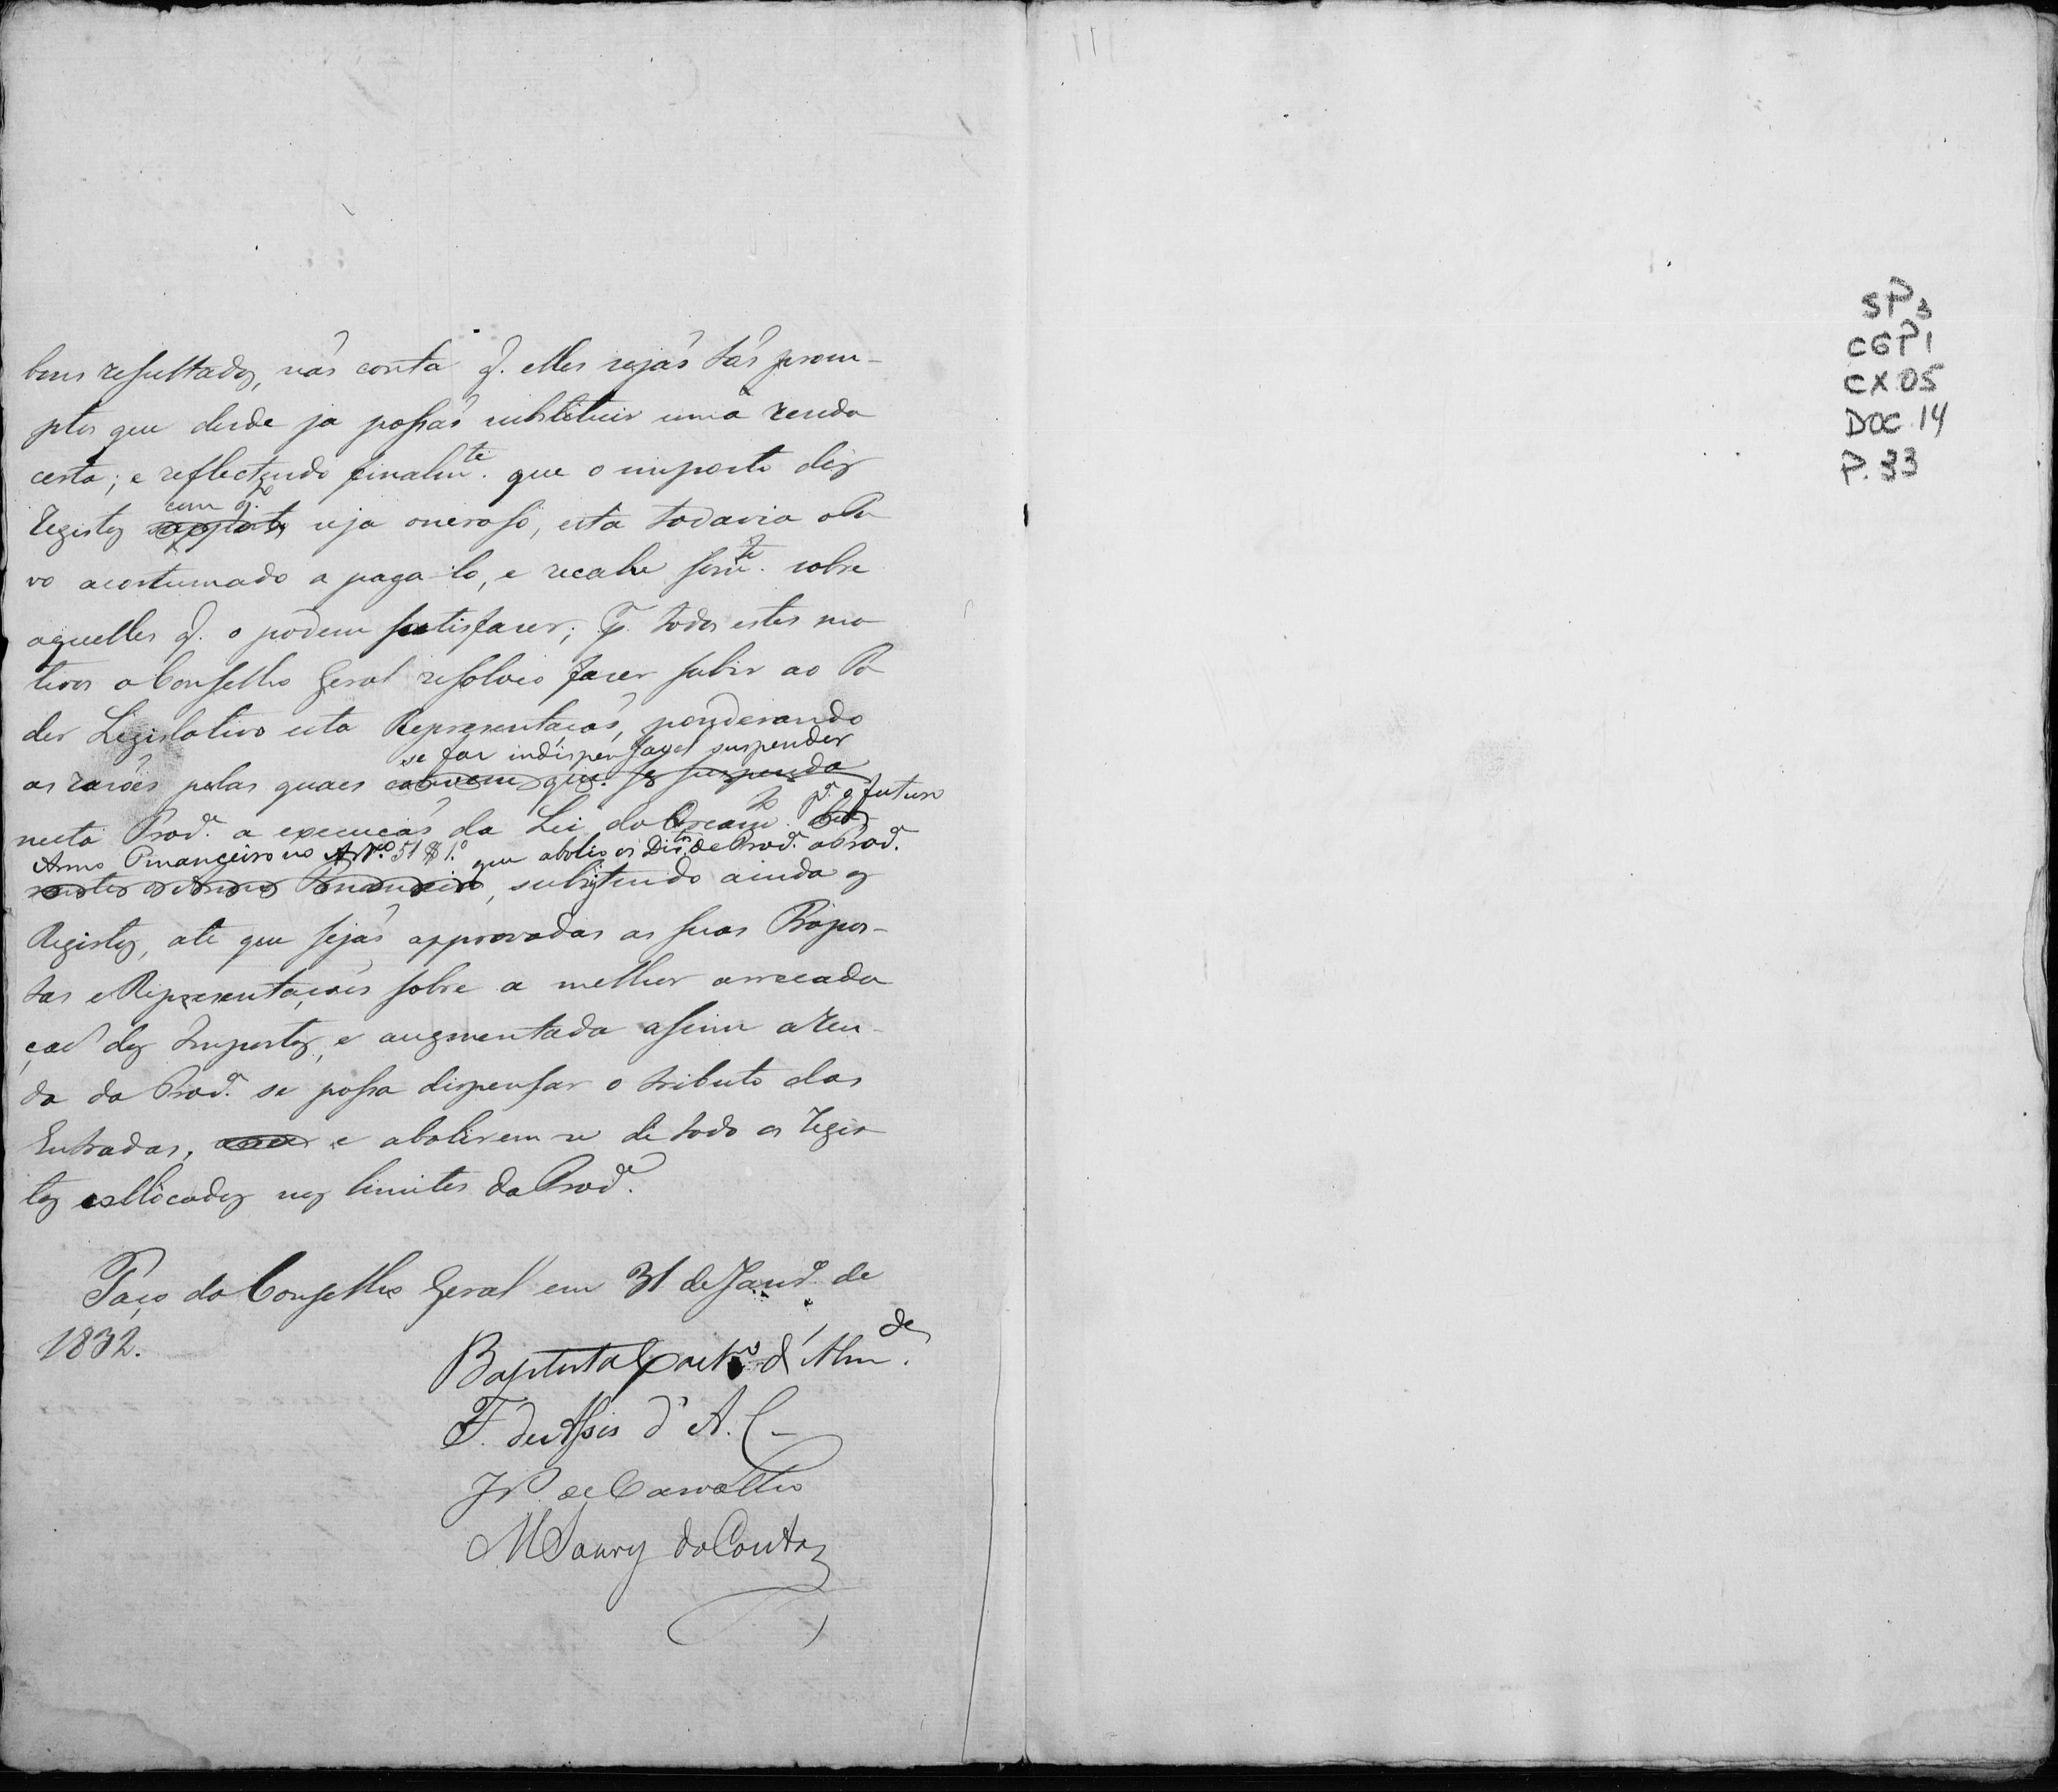 bons resultados, não conta q. elles sejão tão prom-
ptos que desde ja possão substituir uma renda
certa; e reflectindo finalm.te que o imposto dos
com q.to
Registos seja oneroso, esta todavia o Po
vo acostumado a paga-lo, e recahe som.te sobre
aquelles q. o podem satisfazer; P. todos estes mo
tivos o Conselho Geral resolveo fazer subir ao Po
der Legislativo esta Representação, ponderando
se faz indispensavel suspender
as razões pelas quaes convem que se suspenda
p.a o futuro
nesta Prov.a a execução da Lei do Orçam.to
Anno Financeiro no Art.o 51 § 1.o que abolio os Dir.tos de Prov.a a Prov.a
neste Anno Financeiro, subsistindo ainda os
Registos, até que sejão approvadas as suas Propos-
tas e Representações sobre a melhor arrecada
ção dos Impostos, e augmentada assim a Ren-
da da Prov.a se possa dispensar o tributo das
Entradas, e abolirem-se de todo os Regis
tos collocados nos limites da Prov.a
Paço do Conselho Geral em 31 de Janr.o de
1832.
Baptista Caet.o d'Alm.da
F. de Assis d'A.
JP. de Carvalho
M Soares do Couto
SP3
CGP1
CX 05
DOC. 14
P. 33